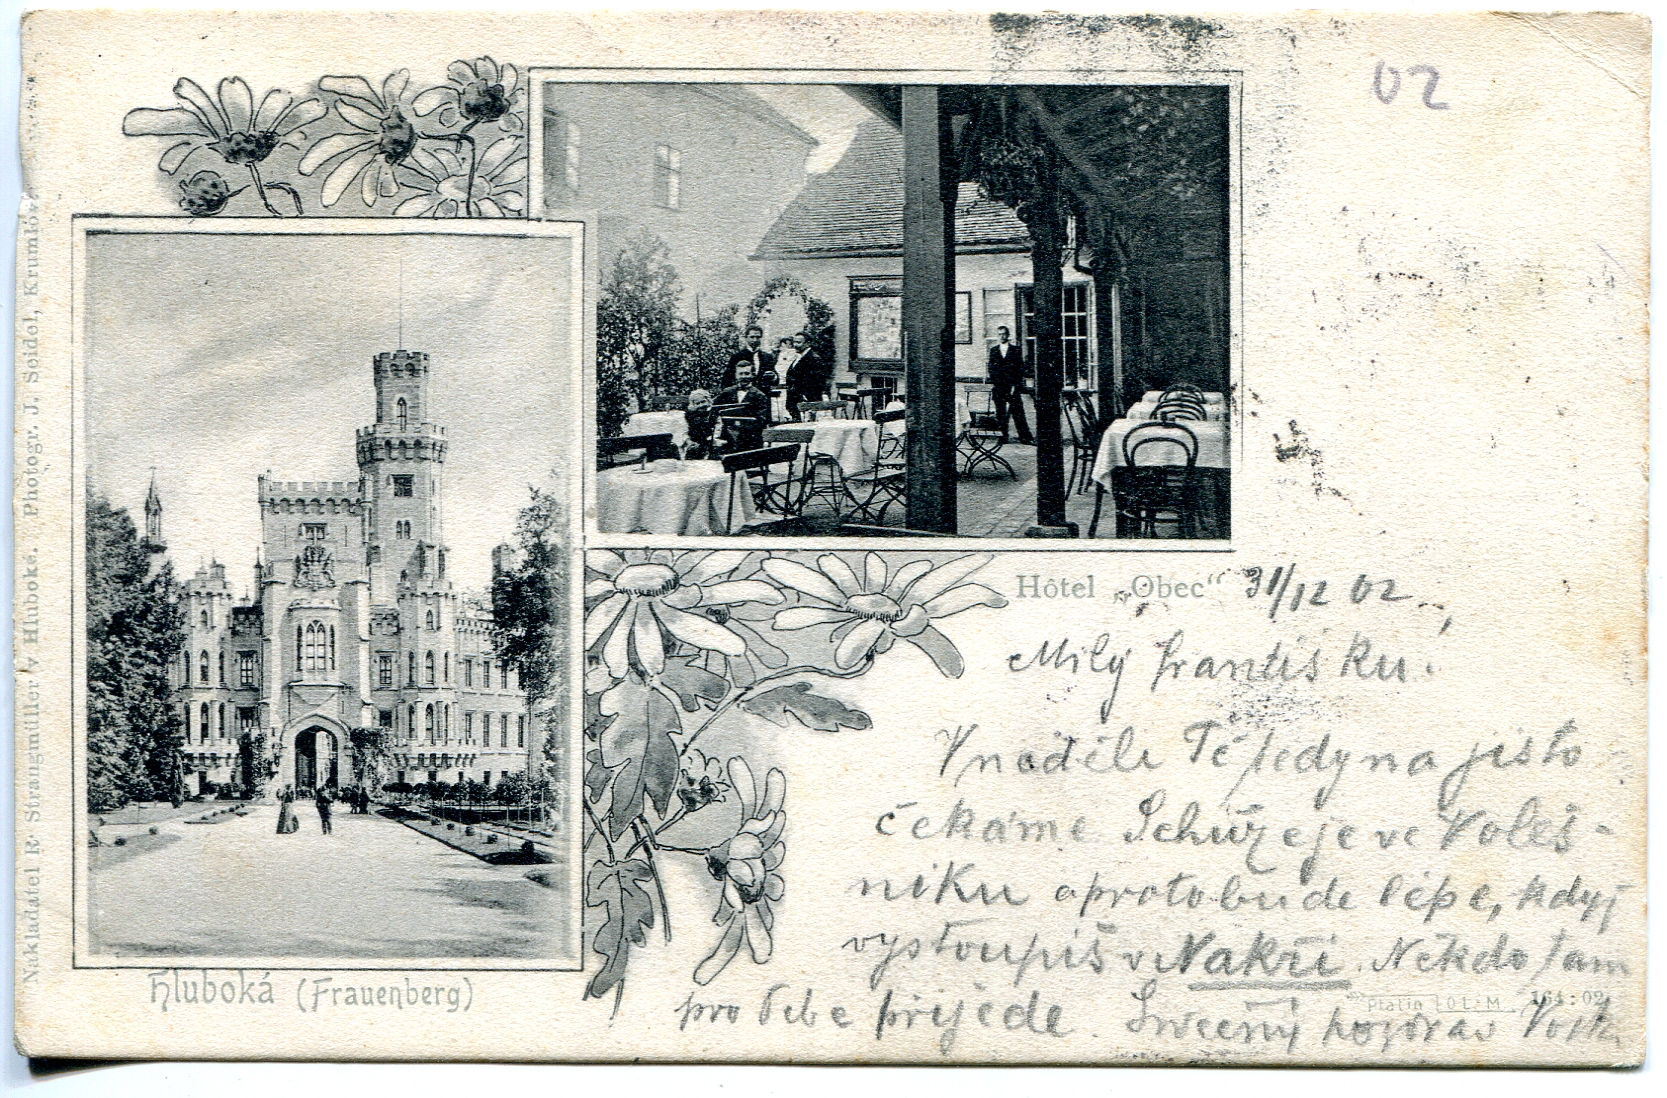 02
Nakladatel R. Strangmüller v Hluboké. Photogr. J. Seidel, Krumlov.
Hôtel „Obec“ 31/12 02
Milý Františku!
V neděli Tě tedy na jisto
čekáme Schůze je ve Voleš-
níku a proto bude lépe, když
vystoupíš v Nákří. Někdo tam
pro Tebe přijede. Srdečný pozdrav
Hluboká (Frauenberg)
164:02